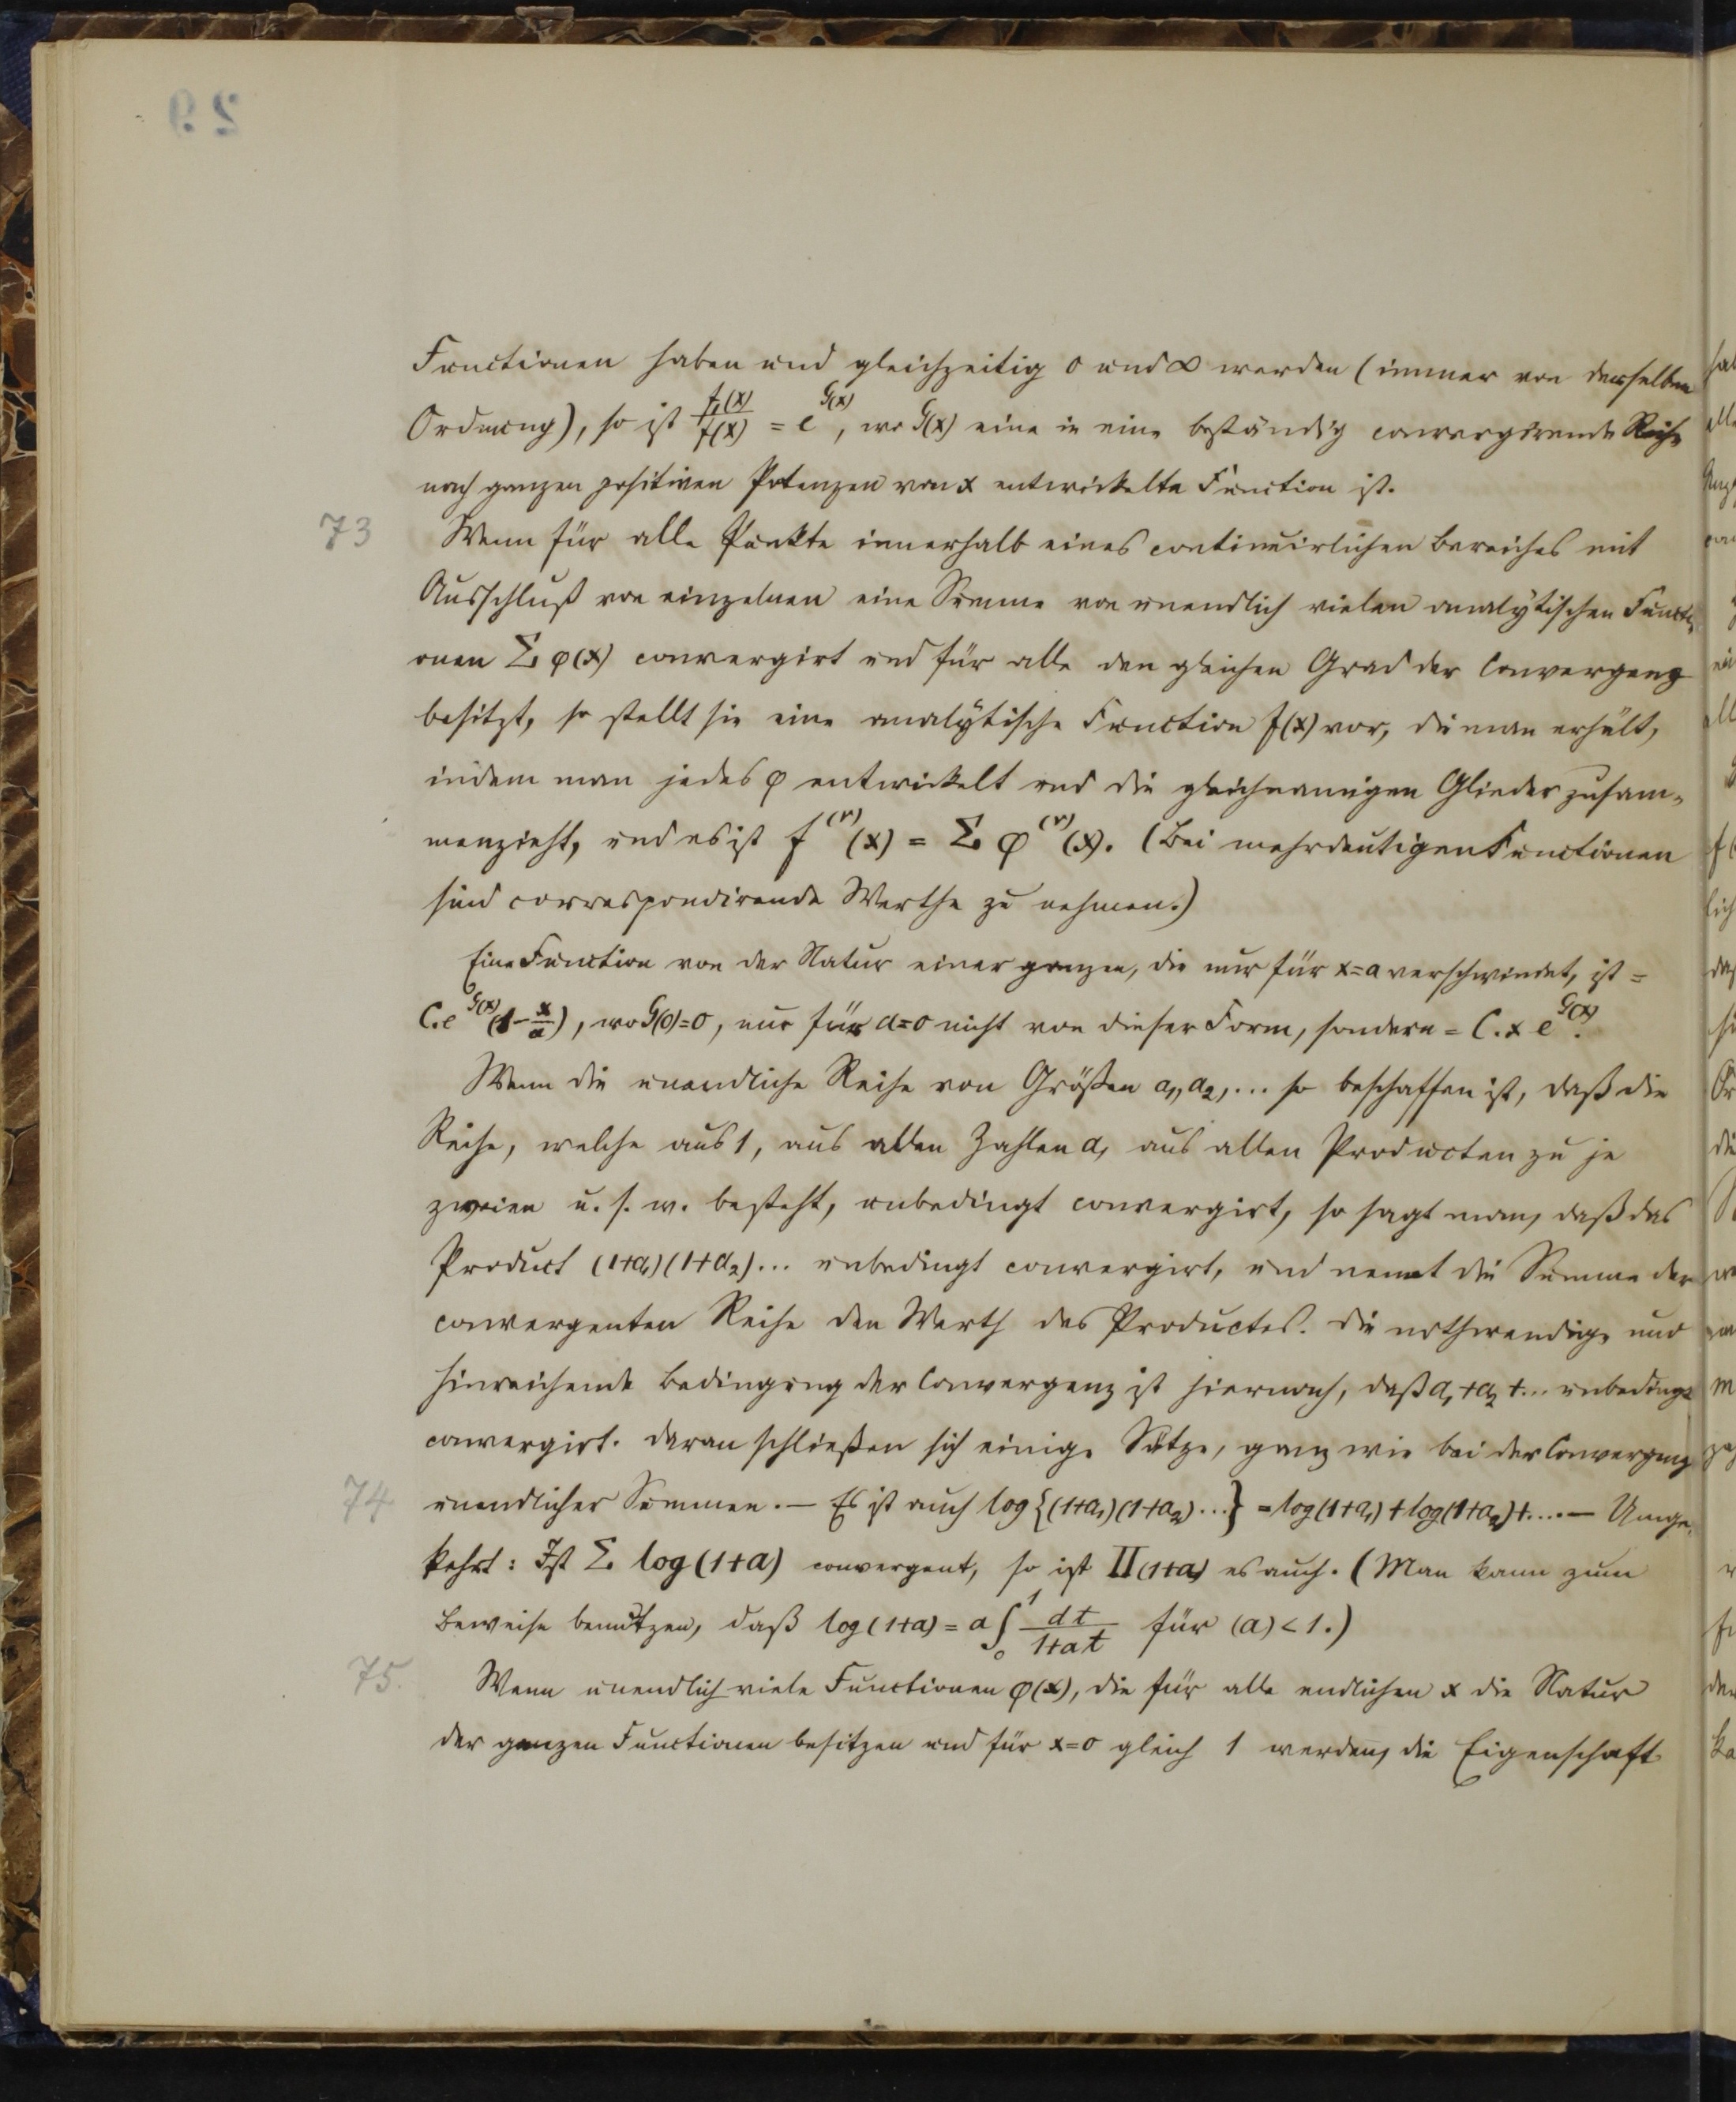 Functionen haben und gleichzeitig 0 und ∞ werden (immer von derselben
Ordnung), so ist f₁(x)/f(x) = e^G(x), wo G(x) eine in eine beständig convergirende Reihe
nach ganzen positiven Potenzen von x entwickelte Function ist.
73 Wenn für alle Punkte innerhalb eines continuirlichen Bereiches mit
Ausschluß von einzelnen eine Summe von unendlich vielen analytischen Functi-
onen Σ φ(x) convergirt und für alle den gleichen Grad der Convergenz
besitzt, so stellt sie eine analytische Function f(x) vor, die man erhält,
indem man jedes φ entwickelt und die gleichnamigen Glieder zusam-
menzieht, und es ist f^(ν)(x) = Σ φ^(ν)(x). (Bei mehrdeutigen Functionen
sind correspondirende Werthe zu nehmen.)
Eine Function von der Natur einer ganzen, die nur für x=a verschwindet, ist =
C.e^G(x)(1-x/a), wo G(0)=0, nur für a=0 nicht von dieser Form, sondern = C.x e^G(x).
Wenn die unendliche Reihe von Größen a₁, a₂, ... so beschaffen ist, daß die
Reihe, welche aus 1, aus allen Zahlen a, aus allen Producten zu je
zweien u. s. w. besteht, unbedingt convergirt, so sagt man, daß das
Product (1+a₁)(1+a₂)... unbedingt convergirt, und nennt die Summe der
convergenten Reihe den Werth des Productes. Die nothwendige und
hinreichende Bedingung der Convergenz ist hiernach, daß a₁+a₂+... unbedingt
convergirt. Daran schließen sich einige Sätze, ganz wie bei der Convergenz
74 unendlicher Summen. — Es ist auch log{(1+a₁)(1+a₂)...} = log(1+a₁)+log(1+a₂)+.... — Umge-
kehrt: Ist Σ log(1+a) convergent, so ist Π(1+a) es auch. (Man kann zum
Beweise benutzen, daß log(1+a) = a∫₀¹ dt/(1+at) für (a)<1.)
75. Wenn unendlich viele Functionen φ(x), die für alle endlichen x die Natur
der ganzen Functionen besitzen und für x=0 gleich 1 werden, die Eigenschaft